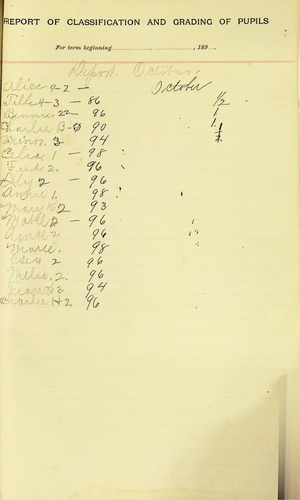 REPORT OF CLASSIFICATION AND GRADING OF PUPILS
For term beginning, 189
Deport. October.
October
Alice 9-2 -
Tille 4-3 - 86 1/2
Dennis 22 - 96 1
Charlie B-0 90 1
3 94
Celia 1 - 98
Fred 2. 96
Lily 2 - 96
Annie 1. 98
Mary H 2 93
Mable 2 - 96
Annie 2 96
Minnie. 98
Elsie 2 96
Melia. 2. 96
3 94
Charlie H 2. 96